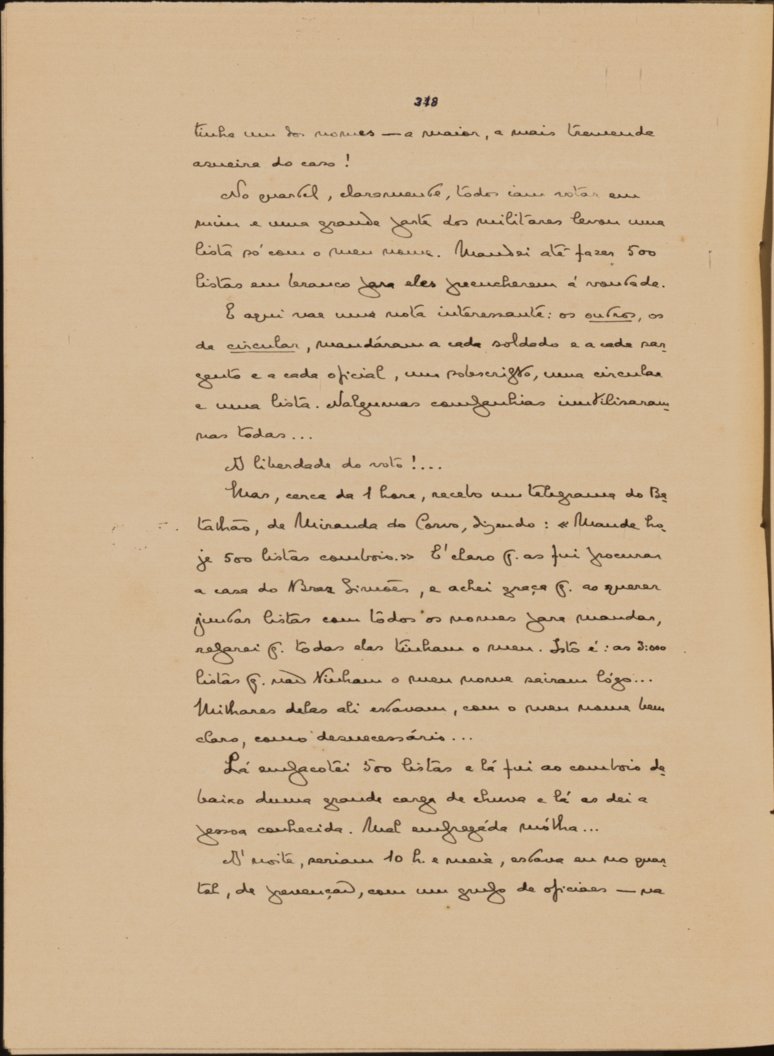 318
tinha um dos nomes — a maior, a mais tremenda
asneira do caso!
No quartel, claramente, todos iam votar em
mim e uma grande parte dos militares levou uma
lista só com o meu nome. Mandei até fazer 500
listas em branco para eles preencherem á vontade.
E aqui vae uma nota interessante: os outros, os
da circular, mandáram a cada soldado e a cada sar-
gento e a cada oficial, um sobscripto, uma circular
e uma lista. Nalgumas companhias inutilisaram-
nas todas...
A liberdade do voto!...
Mas, cerca da 1 hora, recebo um telegrama do Ba-
talhão, de Miranda do Corvo, dizendo: « Mande ho-
je 500 listas comboio.» E' claro q. as fui procurar
a casa do Braz Simões, e achei graça q. ao querer
juntar listas com tôdos os nomes para mandar,
reparei q. todas elas tinham o meu. Isto é: as 3:000
listas q. não tinham o meu nome sairam lógo...
Milhares delas ali estavam, com o meu nome bem
claro, como desnecessário...
Lá empacotei 500 listas e lá fui ao comboio de-
baixo duma grande carga de chuva e lá as dei a
pessoa conhecida. Mal empregáda mólha...
A' noite, seriam 10 h. e meia, estava eu no quar-
tel, de prevenção, com um grupo de oficiaes — na